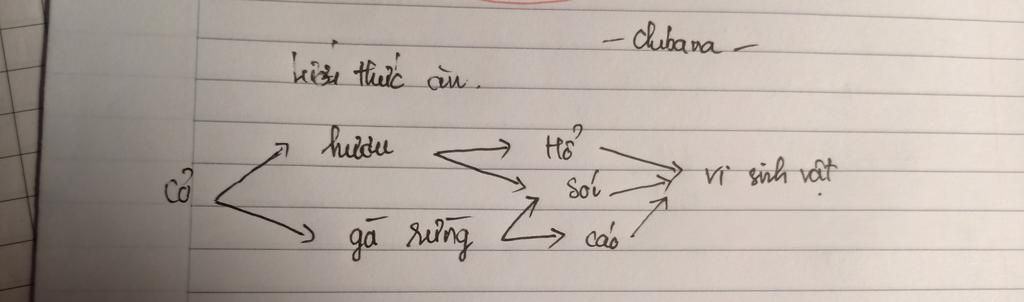 - Chubana -
lưới thức ăn.
hươu Hổ
Cỏ Sói vi sinh vật
gà rừng cáo